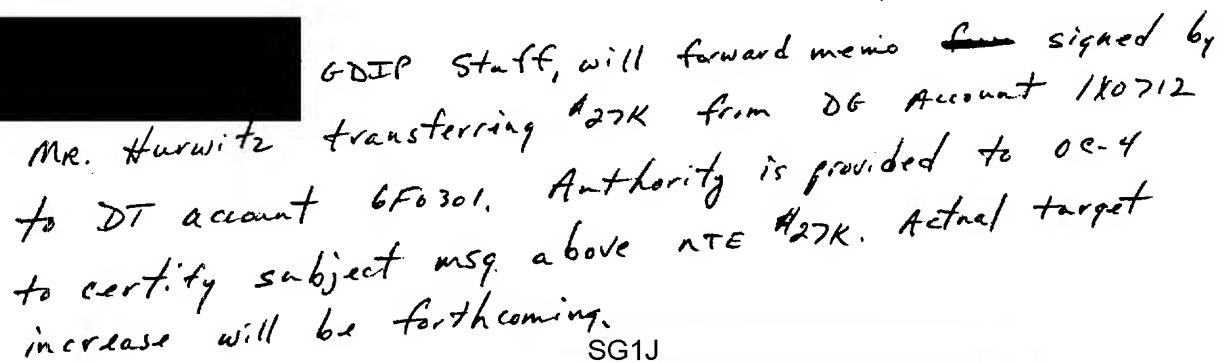 GDIP Staff, will forward memo signed by
MR. Hurwitz transferring $27K from DG Account 1X0712
to DT account 6F0301. Authority is provided to OC-4
to certify subject msg above NTE $27K. Actual target
increase will be forthcoming.
SG1J